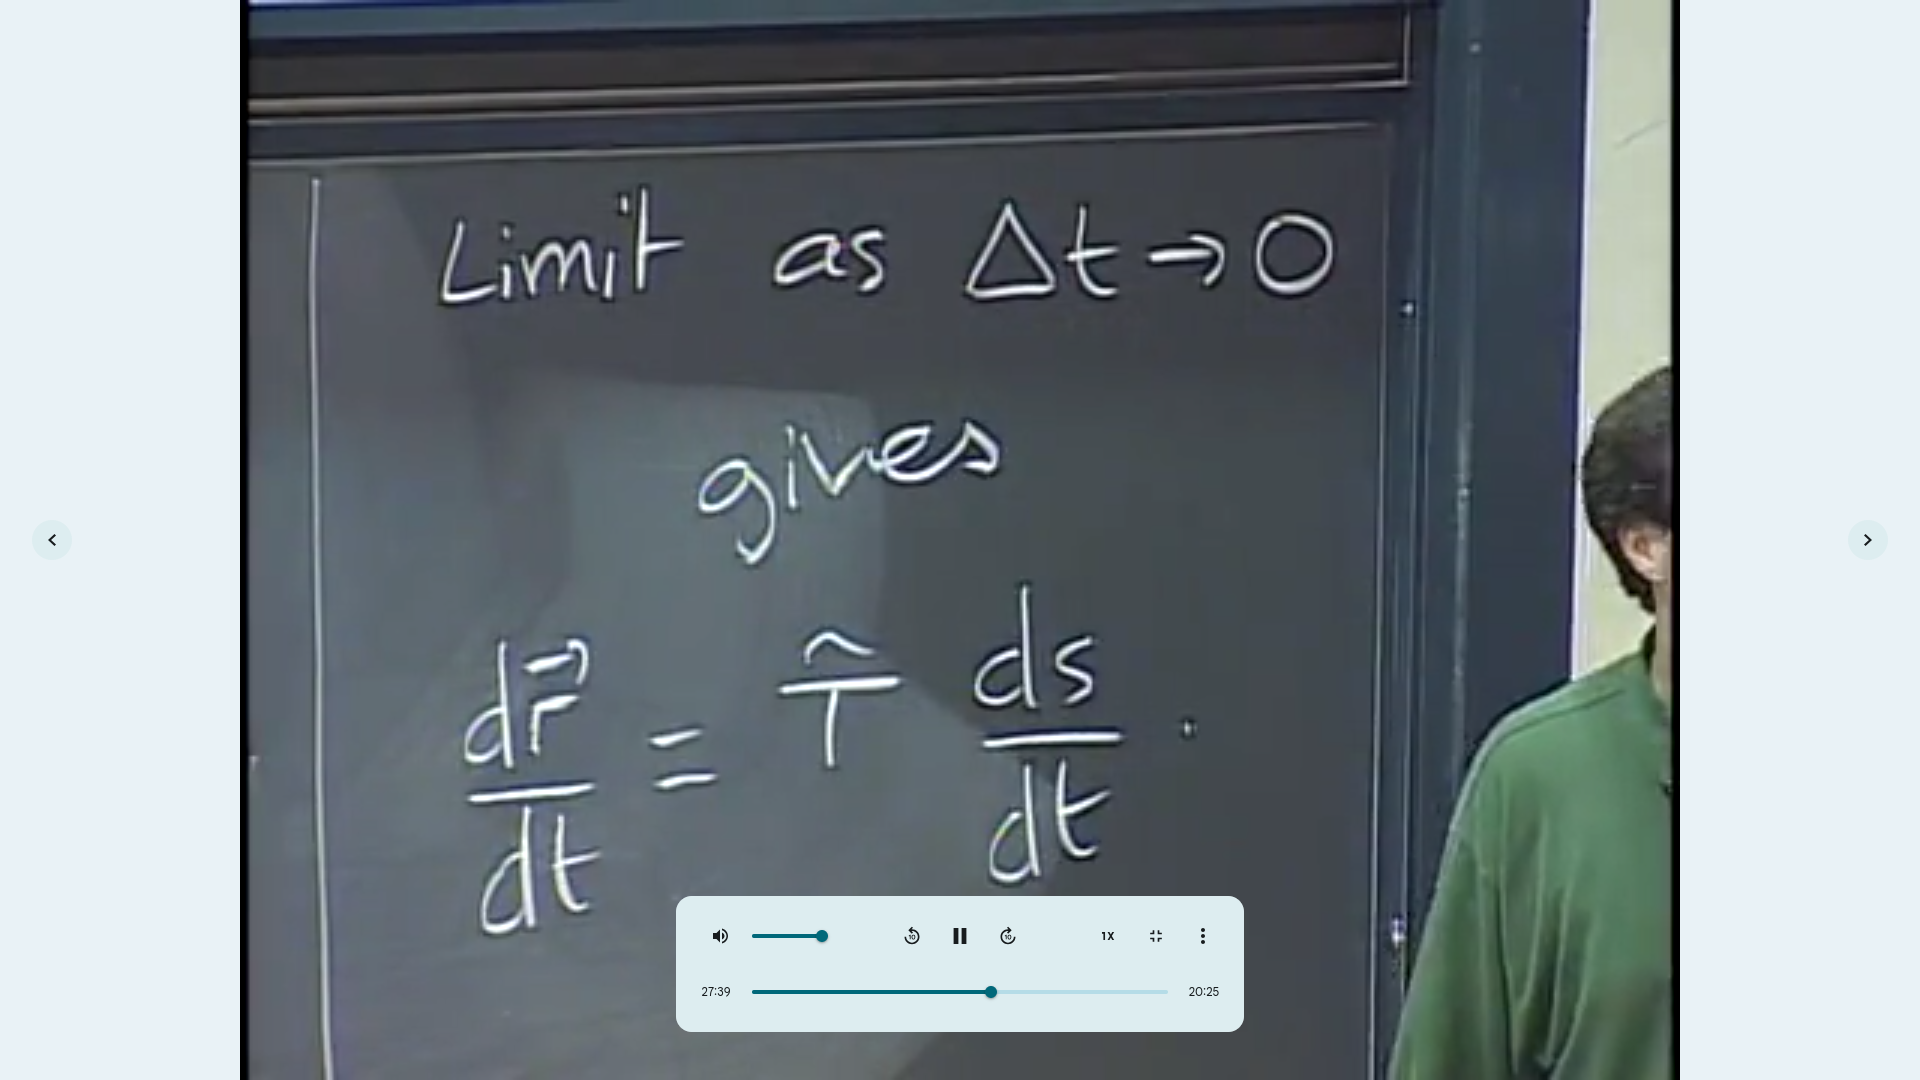 Limit as Δt→0
gives
dr⃗/dt = T̂ ds/dt .
10 10 1X
27:39 20:25